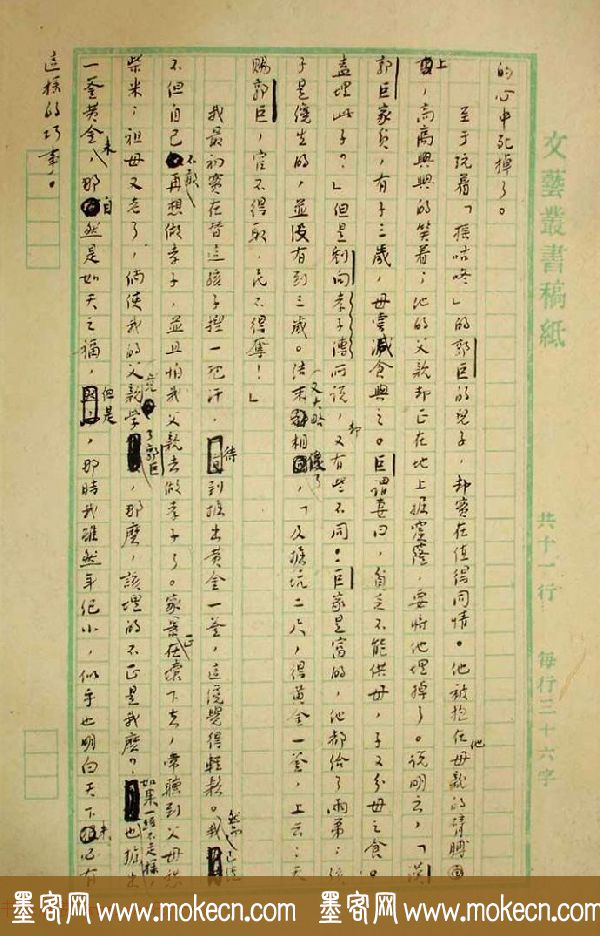 的心中死掉了。
至于玩着「搖咕咚」的郭巨的兒子，却實在值得同情。他被抱在他母親的臂膊
上，高高興興的笑着；他的父親却正在地上掘窟窿，要將他埋掉了。說明云，「漢
郭巨家貧，有子三歲，母嘗減食與之。巨謂妻曰，貧乏不能供母，子又分母之食。
盍埋此子？」但是劉向孝子傳所說，却又有些不同：巨家是富的，他都給了兩弟；孩
子是纔生的，並沒有到三歲。結末又大略相像了，「及掘坑二尺，得黃金一釜，上云：天
賜郭巨，官不得取，民不得奪！」
我最初實在替這孩子捏一把汗，待到掘出黃金一釜，這纔覺得輕鬆。然而我已經
不但自己不敢再想做孝子，並且怕我父親去做孝子了。家景正在壞下去，常聽到父母愁
柴米；祖母又老了，倘使我的父親竟學了郭巨，那麼，該埋的不正是我麼？如果一絲不走樣，也掘出
一釜黃金來，那自然是如天之福，但是，那時我雖然年紀小，似乎也明白天下未必有
這樣的巧事。
文藝叢書稿紙
共十一行　每行三十六字
墨客网 www.mokecn.com 墨客网 www.mokecn.com